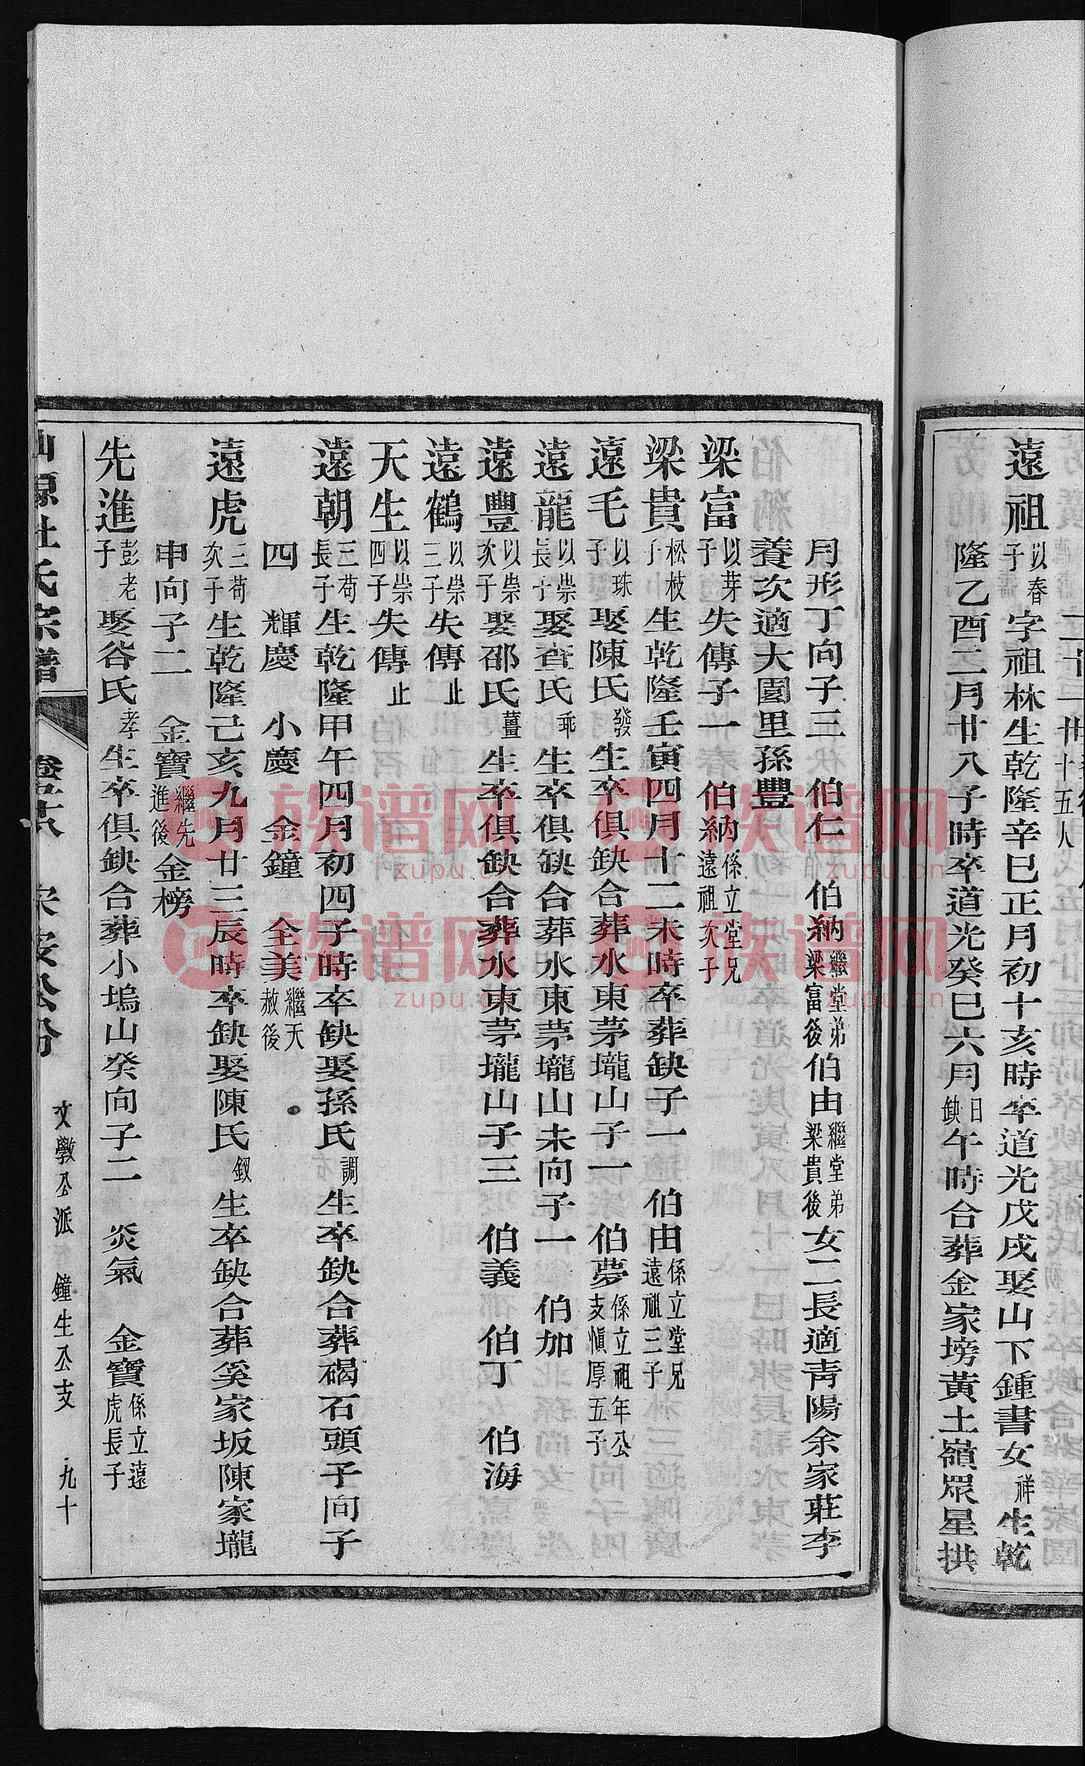 二十一世 十五人
遠祖 以春子 字祖林生乾隆辛巳正月初十亥時卒道光戊戌娶山下鍾書女 祥 生乾
隆乙酉二月廿八子時卒道光癸巳六月 缺日 午時合葬金家塝黃土嶺眾星拱
月形丁向子三 伯仁 伯納 繼堂弟梁富後 伯由 繼堂弟梁貴後 女二長適青陽余家莊李
養次適大園里孫豐
梁富 以芽子 失傳子一 伯納 係立堂兄遠祖次子
梁貴 松枝子 生乾隆壬寅四月十二未時卒葬缺子一 伯由 係立堂兄遠祖三子
遠毛 以珠子 娶陳氏 發 生卒俱缺合葬水東茅壠山子一 伯夢 係立祖年公支愼厚五子
遠龍 以崇長子 娶查氏 乖 生卒俱缺合葬水東茅壠山未向子一 伯加
遠豐 以崇次子 娶邵氏 薑 生卒俱缺合葬水東茅壠山子三 伯義 伯丁 伯海
遠鶴 以崇三子 失傳 止
天生 以崇四子 失傳 止
遠朝 三苟長子 生乾隆甲午四月初四子時卒缺娶孫氏 調 生卒缺合葬碣石頭子向子
四 輝慶 小慶 金鐘 全美 繼天赦後
遠虎 三苟次子 生乾隆己亥九月廿三辰時卒缺娶陳氏 釵 生卒缺合葬奚家坂陳家壠
申向子二 金寶 繼先進後 金榜
先進 彭老子 娶谷氏 孝 生卒俱缺合葬小塢山癸向子二 炎氣 金寶 係立遠虎長子
杜氏宗譜 卷 安公房 文斅公派 鐘生公支 九十
族谱网
zupu.cn
族谱网
zupu.cn
族谱网
zupu.cn
族谱网
zupu.cn